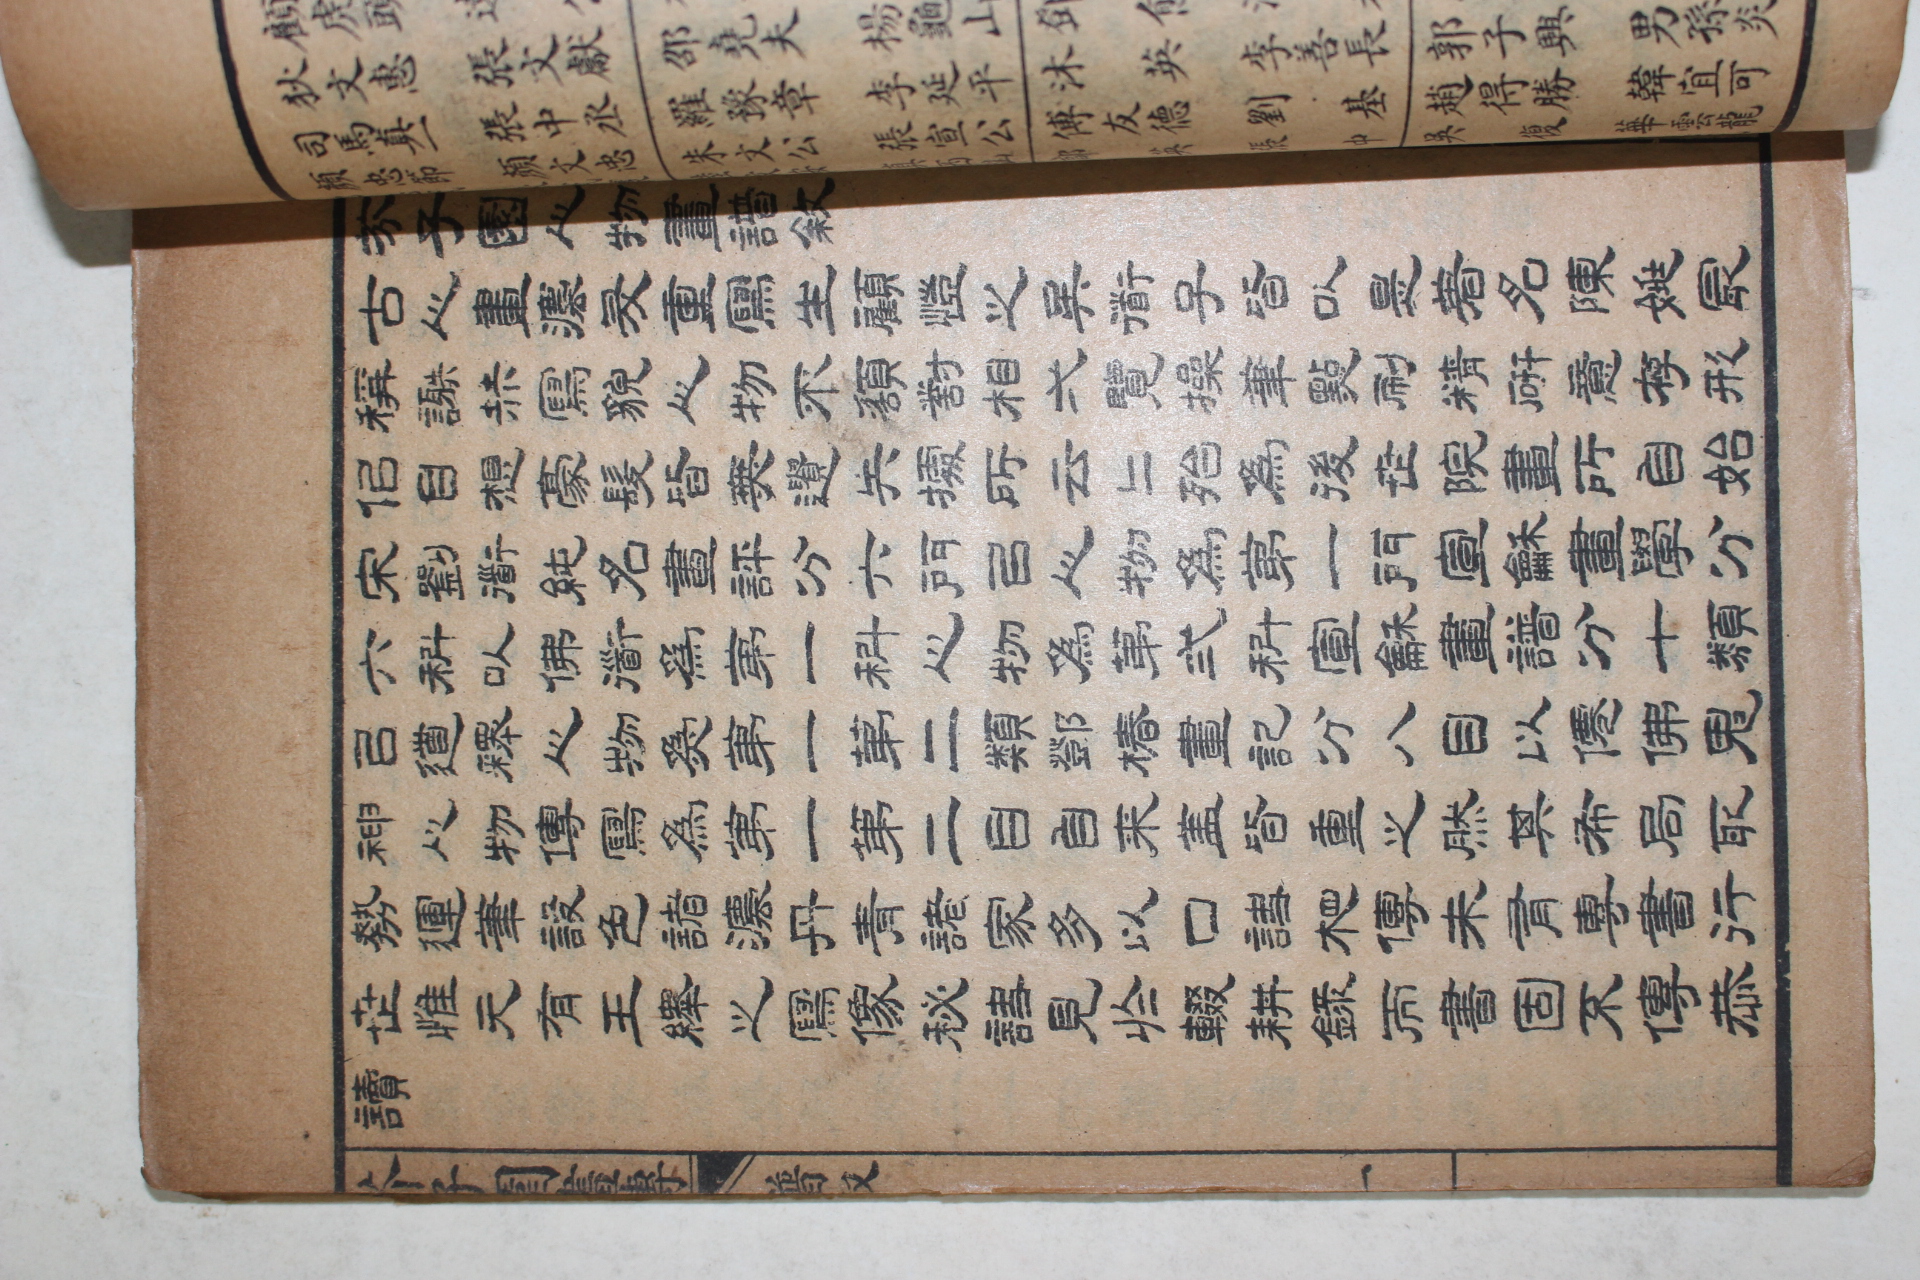 顧虎頭
狄文惠 張文獻 邵堯夫 楊龜山
司馬真一 張中丞 羅豫章 李延平 沐英 李善長 郭子興 男孫炎
顏忠節 顏文忠 朱文公 張宣公 傅友德 劉基 趙得勝 韓宜可
真西山 英 張中 吳復 華雲龍
芥子園人物畫譜敘
古人畫灋冣重寫生顧愷之吳衜子皆以是著名陳姚冣
稱謝赫寫貌人物不額對相弌覽操筆點刷精研意存形
佀目想豪髮皆無遺失據所云亡殆為後世院畫所自始
宋劉衜純名畫評分六門㠯人物為第一門宣龢畫學分
六科以佛衜為第一科人物為第弍科宣龢畫譜分十類
㠯道釋人物為第一第二類鄧椿畫記分八目以僊佛鬼
神人物傳寫為第一第二目自來蓋皆重之然其布局取
勢運筆設色諸灋丹青諸家多以口訣相傳未有專書行
世惟元有王繹之寫像秘訣見於輟耕錄而書固不傳恭
讀
芥子園畫傳 譜敘 一